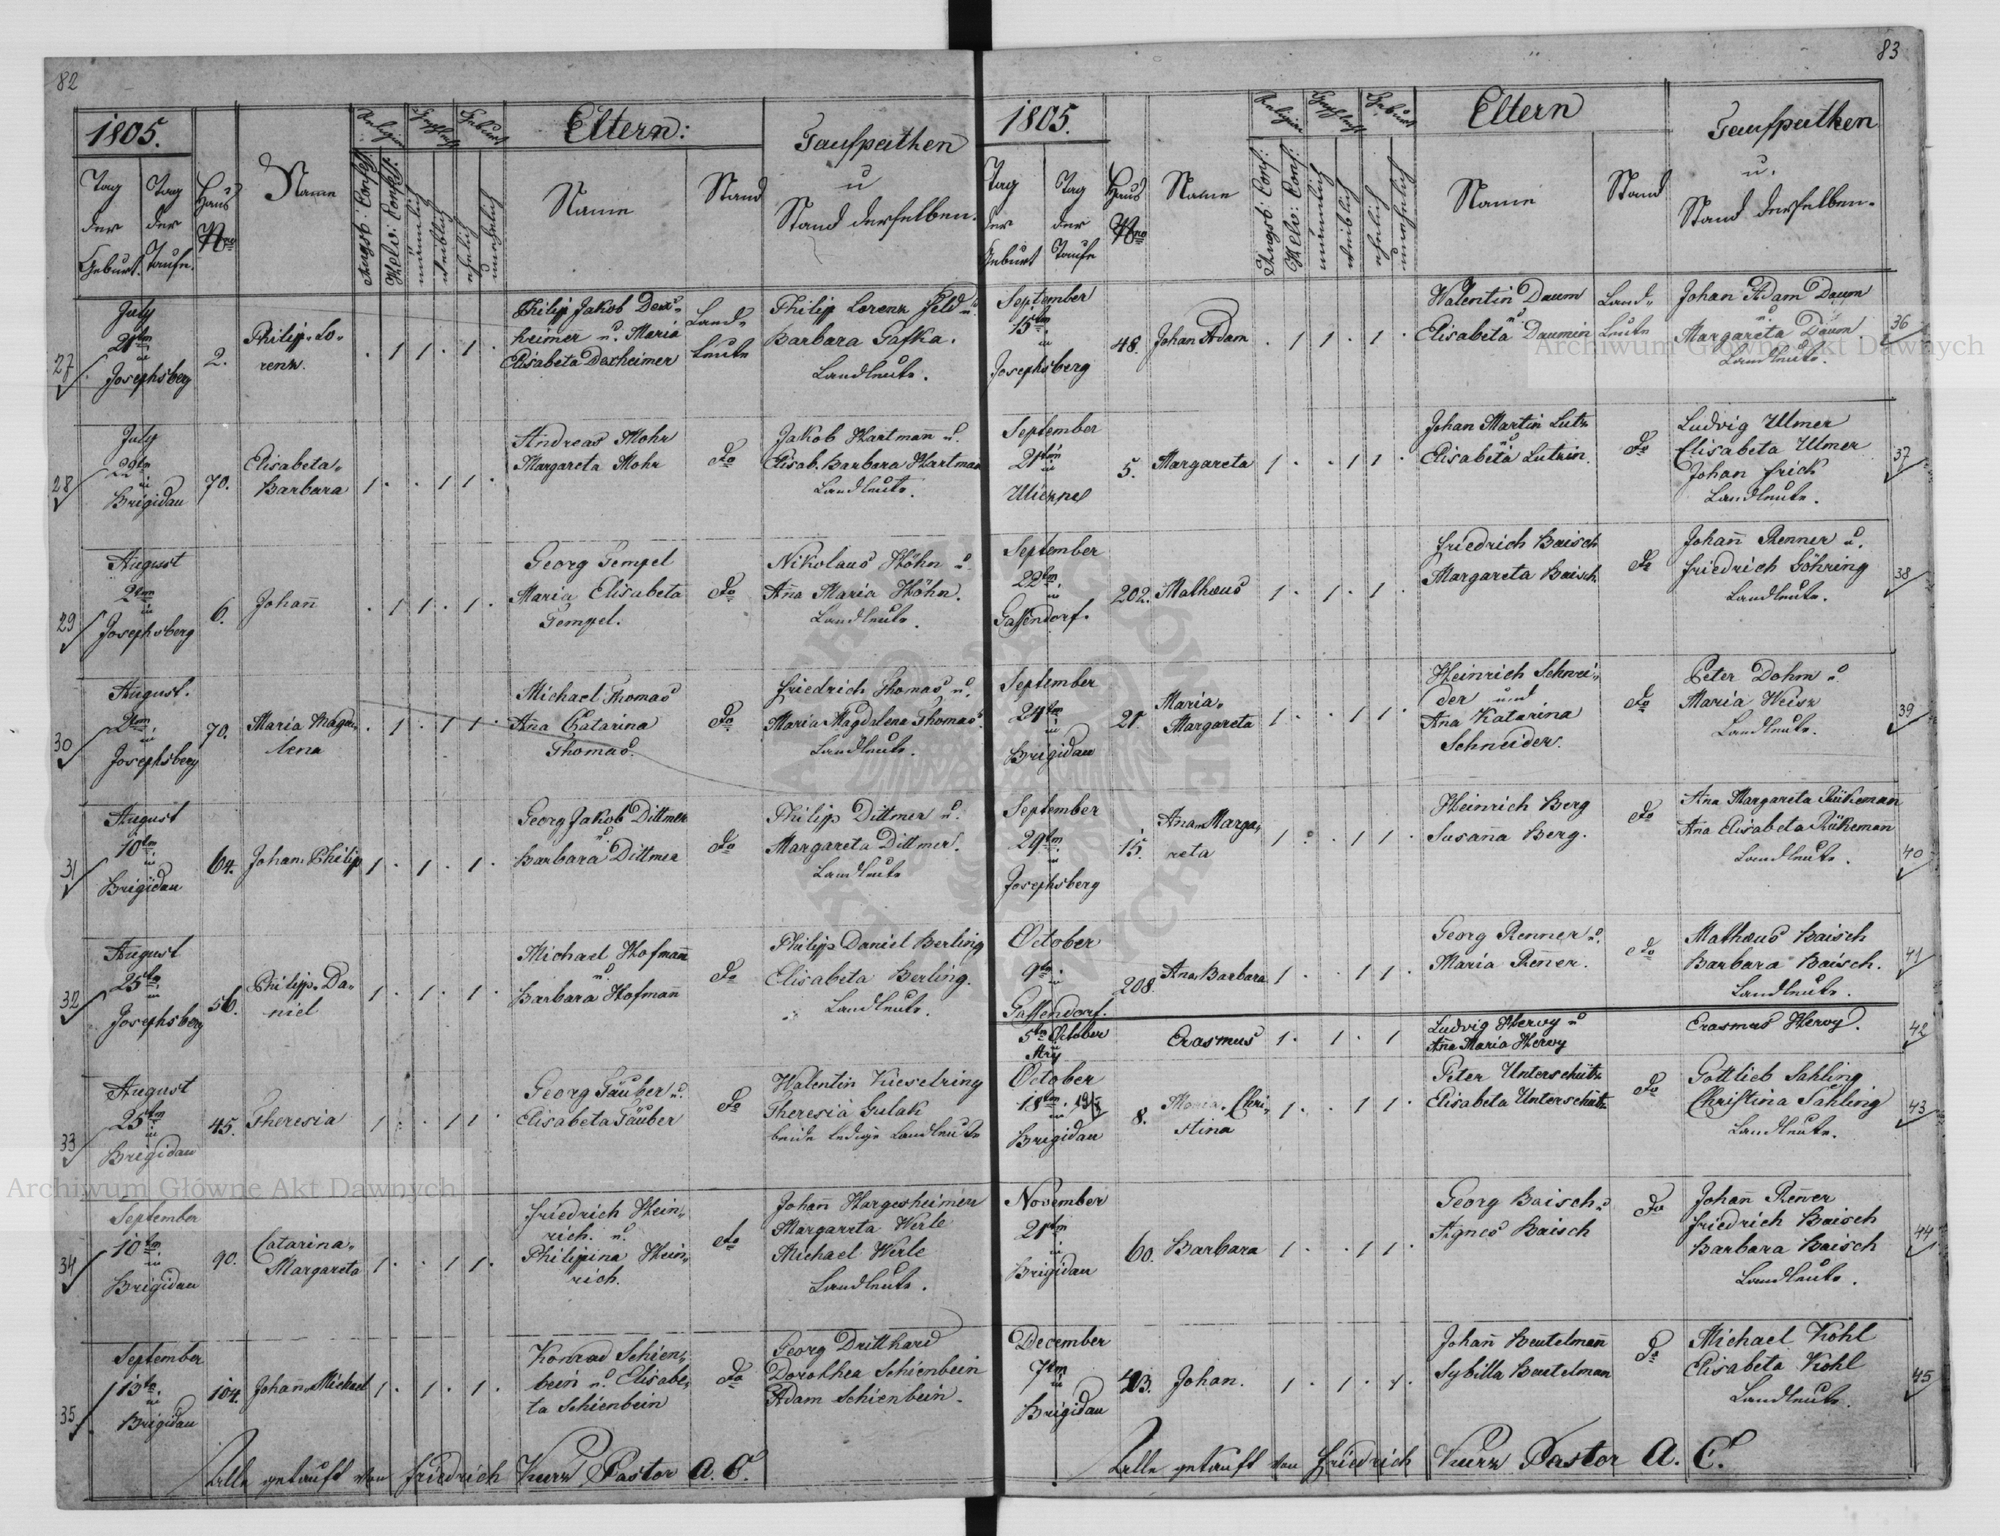 82
1805.
Tag der Geburt.
Tag der Taufe.
Haus Nro
Name
Religion
Geschlecht
Geburt
Augsb: Confes:
Helv: Confes:
männlich
weiblich
ehelich
unehelich
Eltern:
Name
Stand
Taufpathen
u
Stand derselben.
27
July
21tn
in
Josephsberg
2.
Philipp Lo-
renz.
. 1 1 . 1 .
Philip Jakob Dex-
heimer u. Maria
Elisabeta Dexheimer
Land-
leute
Philip Lorenz Feld u.
Barbara Tafka.
Landleute.
28
July
29tn
in
Brigidau
70.
Elisabeta-
Barbara
1 . . 1 1 .
Andreas Mohr
Margareta Mohr
do
Jakob Hartmann u.
Elisab. Barbara Hartman
Landleute.
29
August
2ten
in
Josephsberg
6.
Johan̄
. 1 1 . 1 .
Georg Tempel
Maria Elisabeta
Tempel.
do
Nikolaus Höhn u.
An̄a Maria Höhn.
Landleute.
30
August.
in
Josephsberg
70.
Maria Magda-
lena
. 1 . 1 1 .
Michael Thomas
An̄a Catarina
Thomas.
do
Friedrich Thomas u.
Maria Magdalena Thomas
Landleute.
31
August
10tn
in
Brigidau
64.
Johan. Philip
1 . 1 . 1 .
Georg Jakob Dittmer
u
Barbara Dittmer
do
Philipp Dittmer u.
Margareta Dittmer.
Landleute
32
August
25tn
in
Josephsberg
56.
Philipp Da-
niel
1 . 1 . 1 .
Michael Hofman̄
u.
Barbara Hofman̄
do
Philipp Daniel Berling
Elisabeta Berling.
Landleute.
33
August
25tn
in
Brigidau
45.
Theresia
1 . . 1 1 .
Georg Täuber u.
Elisabeta Täuber
do
Valentin Kieselring
Theresia Gulak
beide ledige Landleute
34
September
10tn
in
Brigidau
90.
Catarina-
Margareta
1 . . 1 1 .
Friedrich Hein-
rich. u.
Philipina Hein-
rich.
do
Johan̄ Hargesheimer
Margareta Werle
Michael Werle
Landleute.
35
September
13tn
in
Brigidau
104.
Johan̄ Michael
1 . 1 . 1 .
Konrad Schien-
bein u. Elisabe-
ta Schienbein
do
Georg Dritthard
Dorothea Schienbein
Adam Schienbein.
Alle getauft von Friedrich Kurz Pastor A. C.
83
1805.
Tag der Geburt
Tag der Taufe
Haus Nro
Name
Religion
Geschlecht
Geburt
Augsb: Conf:
Helv: Conf:
männlich
weiblich
ehelich
unehelich
Eltern
Name
Stand
Taufpathen
u.
Stand derselben.
September
15tn
in
Josephsberg
48.
Johan Adam
. 1 1 . 1 .
Valentin Daum
u
Elisabeta Daumin
Land-
leute
Johan Adam Daum
u
Margareta Daum
Landleute.
36
September
21tn
in
Ugerne
5.
Margareta
1 . . 1 1 .
Johan Martin Lutz
u
Elisabeta Lutzin.
do
Ludvig Ulmer
Elisabeta Ulmer
Johan Frick
Landleute.
37
September
22tn
in
Gassendorf.
202.
Matheus
1 . 1 . 1 .
Friedrich Baisch
Margareta Baisch
do
Johan̄ Renner u.
Friedrich Göhring
Landleute.
38
September
24tn
in
Brigidau
21.
Maria-
Margareta
1 . . 1 1 .
Heinrich Schnei-
der und
Ana Katarina
Schneider.
do
Peter Dohm u
Maria Weisz
Landleute.
39
September
29tn
in
Josephsberg
15.
Ana Marga-
reta
1 . . 1 1 .
Heinrich Berg
Susan̄a Berg.
do
Ana Margareta Rükeman
Ana Elisabeta Rükeman
Landleute.
40
October
9tn
in
Gassendorf.
208.
Ana Barbara
1 . . 1 1 .
Georg Renner u.
Maria Rener.
do
Matheus Baisch
Barbara Baisch.
Landleute.
41
5tn October
Stry
Erasmus
1 . 1 . 1
Ludvig Hervy u
An̄a Maria Hervy
Erasmus Hervy.
42
October
18tn
in
Brigidau
8.
Maria. Chri-
stina
1 . . 1 1 .
Peter Unterschütz
Elisabeta Unterschütz
do
Gottlieb Sahling
Christina Sahling
Landleute.
43
November
21tn
in
Brigidau
60.
Barbara
1 . . 1 1 .
Georg Baisch u
Agnes Baisch
do
Johan Ren̄er
Friedrich Baisch
Barbara Baisch
Landleute.
44
December
7tn
in
Brigidau
Johan.
1 . 1 . 1 .
Johan̄ Beutelman̄
Sybilla Beutelman
do
Michael Kohl
Elisabeta Kohl
Landleute.
45
Alle getauft von Friedrich Kurz Pastor A. C.
Archiwum Główne Akt Dawnych
Archiwum Główne Akt Dawnych
ARCHIWUM GŁÓWNE AKT DAWNYCH